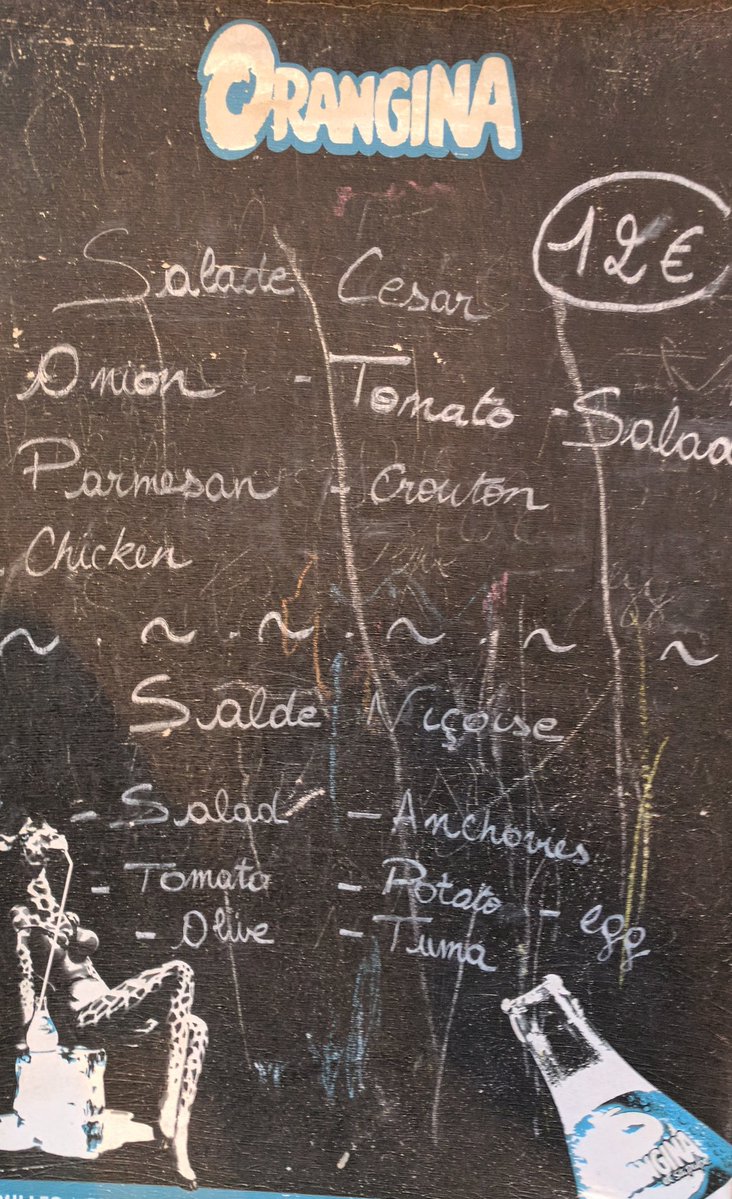 ORANGINA
Salade Cesar 12€
Onion - Tomato - Salad
Parmesan - Crouton
Chicken
~ . ~ . ~ . ~ . ~ . ~
Salde Niçoise
- Salad - Anchovies
- Tomato - Potato - egg
- Olive - Tuma